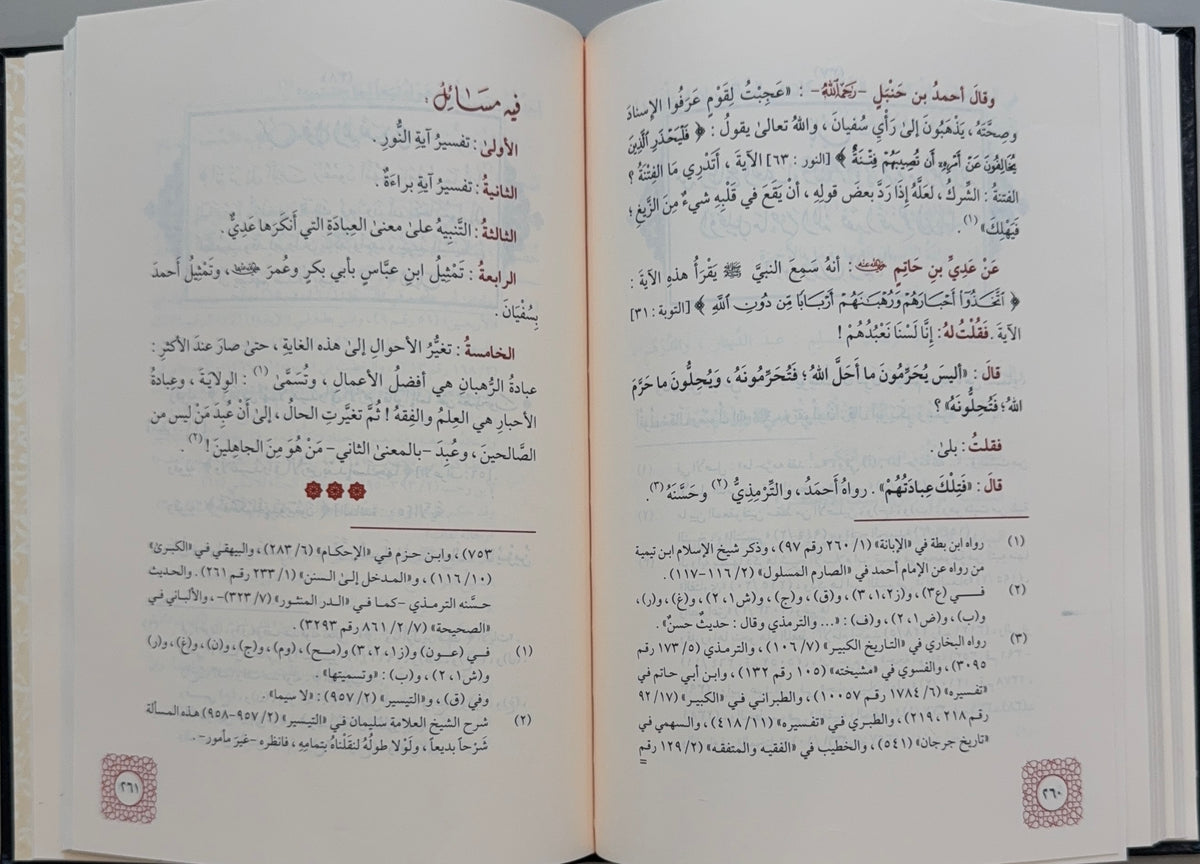 وقالَ أحمدُ بن حَنْبَلٍ -رَحِمَهُ اللَّهُ- : «عَجِبْتُ لِقَوْمٍ عَرَفُوا الإِسنادَ
وصِحَّتَهُ ، يَذْهَبُونَ إلىٰ رَأْيِ سُفيانَ ، واللهُ تعالىٰ يقولُ : ﴿ فَلْيَحْذَرِ ٱلَّذِينَ
يُخَالِفُونَ عَنْ أَمْرِهِۦٓ أَن تُصِيبَهُمْ فِتْنَةٌ ﴾ [النور : ٦٣] الآيةَ ، أَتَدْرِي مَا الفِتْنَةُ ؟
الفتنةُ : الشِّركُ ، لعَلَّهُ إِذَا رَدَّ بعضَ قولِهِ ، أنْ يَقَعَ في قَلْبِهِ شيءٌ مِنَ الزَّيغِ ؛
فَيَهْلِكَ» (١) .
عَنْ عَدِيِّ بنِ حَاتِمٍ رَضِيَ اللَّهُ عَنْهُ : أنهُ سَمِعَ النبيَّ ﷺ يَقْرَأُ هذهِ الآيةَ :
﴿ ٱتَّخَذُوٓا۟ أَحْبَارَهُمْ وَرُهْبَـٰنَهُمْ أَرْبَابًا مِّن دُونِ ٱللَّهِ ﴾ [التوبة : ٣١]
الآيةَ . فَقُلْتُ لهُ : إِنَّا لَسْنَا نَعْبُدُهُمْ !
قالَ : «أَليسَ يُحَرِّمُونَ ما أَحَلَّ اللهُ ؛ فَتُحَرِّمُونَهُ ، وَيُحِلُّونَ ما حَرَّمَ
اللهُ ؛ فَتُحِلُّونَهُ» ؟
فقلتُ : بلىٰ .
قالَ : «فَتِلْكَ عِبادَتُهُمْ» . رواهُ أَحمَدُ ، والتِّرْمِذِيُّ (٢) وحَسَّنَهُ (٣).
(١) رواه ابن بطة في «الإبانة» (١/ ٢٦٠ رقم ٩٧) ، وذكر شيخ الإسلام ابن تيمية
من رواه عن الإمام أحمد في «الصارم المسلول» (٢/ ١١٦-١١٧) .
(٢) فـــي (ع٣) ، و(ز١،٢،٣) ، و(ق) ، و(ج) ، و(ش١،٢) ، و(غ) ، و(ر)،
و(ب) ، و(ض١،٢) ، و(ف) : «... والترمذي وقال : حديثٌ حسنٌ» .
(٣) رواه البخاري في «التاريخ الكبير» (٧/ ١٠٦) ، والترمذي (٥/ ١٧٣ رقم
٣٠٩٥) ، والفسوي في «مشيخته» (١٠٥ رقم ١٣٢) ، وابن أبي حاتم في
«تفسيره» (٦/ ١٧٨٤ رقم ١٠٠٥٧) ، والطبراني في «الكبير» (١٧/ ٩٢
رقم ٢١٨ ، ٢١٩) ، والطبري في «تفسيره» (١١/ ٤١٨) ، والسهمي في
«تاريخ جرجان» (٥٤١) ، والخطيب في «الفقيه والمتفقه» (٢/ ١٢٩ رقم
=
٢٦٠
فيه مسَائِلُ :
الأولىٰ : تفسيرُ آيةِ النُّورِ .
الثانيةُ : تفسيرُ آيةِ براءَةٌ .
الثالثةُ : التَّنبِيهُ علىٰ معنىٰ العِبادَةِ التي أَنكَرَها عَدِيٌّ .
الرابعةُ : تَمْثِيلُ ابنِ عبَّاسٍ بأبي بكرٍ وعُمرَ رَضِيَ اللَّهُ عَنْهُمْ ، وتَمْثِيلُ أحمدَ
بِسُفْيَانَ .
الخامسةُ : تغيُّرُ الأحوالِ إلىٰ هذه الغايةِ ، حتىٰ صارَ عندَ الأكثرِ :
عبادةُ الرُّهبانِ هي أفضلُ الأعمالِ ، وتُسَمَّىٰ (١) : الوِلايةَ ، وعِبادةُ
الأحبارِ هي العِلمُ والفِقهُ ! ثُمَّ تغيَّرتِ الحالُ ، إلىٰ أَنْ عُبِدَ مَنْ ليس من
الصَّالحينَ ، وعُبِدَ -بالمعنىٰ الثاني- مَنْ هُوَ مِنَ الجاهِلِينَ ! (٢) .
٧٥٣) ، وابن حزم في «الإحكام» (٦/ ٢٨٣) ، والبيهقي في «الكبرىٰ»
(١٠/ ١١٦) ، و«المدخل إلىٰ السنن» (١/ ٢٣٣ رقم ٢٦١) . والحديث
حسَّنه الترمذي -كما في «الدر المنثور» (٧/ ٣٢٣)- ، والألباني في
«الصحيحة» (٧/ ٢/ ٨٦١ رقم ٣٢٩٣) .
(١) فـي (عـون) و(ز١،٢،٣) و(مـح) ، (وم) ، و(ج) ، و(ن) ، و(غ) ، و(ر)
و(ش١،٢) ، و(ب) : «وتسميتها» .
وفي (ق) ، و«التيسير» (٢/ ٩٥٧) : «لا سيما» .
(٢) شرح الشيخ العلامة سليمان في «التيسير» (٢/ ٩٥٧-٩٥٨) هذه المسألة
شَرْحاً بديعاً ، ولَوْلا طولُهُ لنقَلْناهُ بتمامِهِ ، فانظره -غيرَ مأمور- .
٢٦١